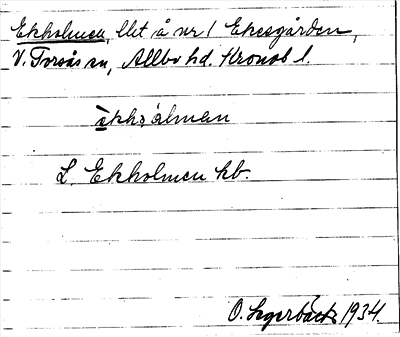 Ekholmen, lht å nr 1 Ekesgården,
V. Torsås sn, Allbo hd. Kronob l.
èkhòlman
L. Ekholmen hb.
O. Lagerbäck 1934.